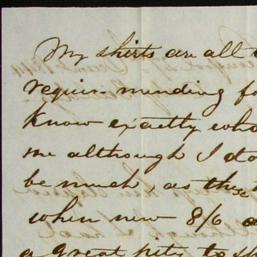 My shirts are all
require mending fo
know exactly wha
me although I do
be much, as these
when new 8/6 a
a great pity to sh